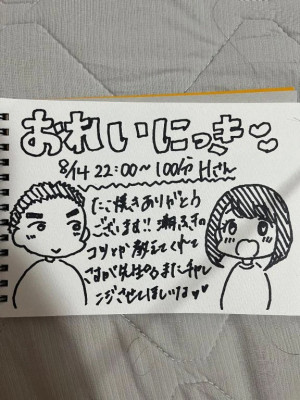 おれいにっき♡♡
8/14 22:00～100分 Hさん
たこ焼きありがとう
ございます!! 潮ふきの
コツとか教えてくれて
さすが先生 またチャレ
ンジさせてほしいな♡♡